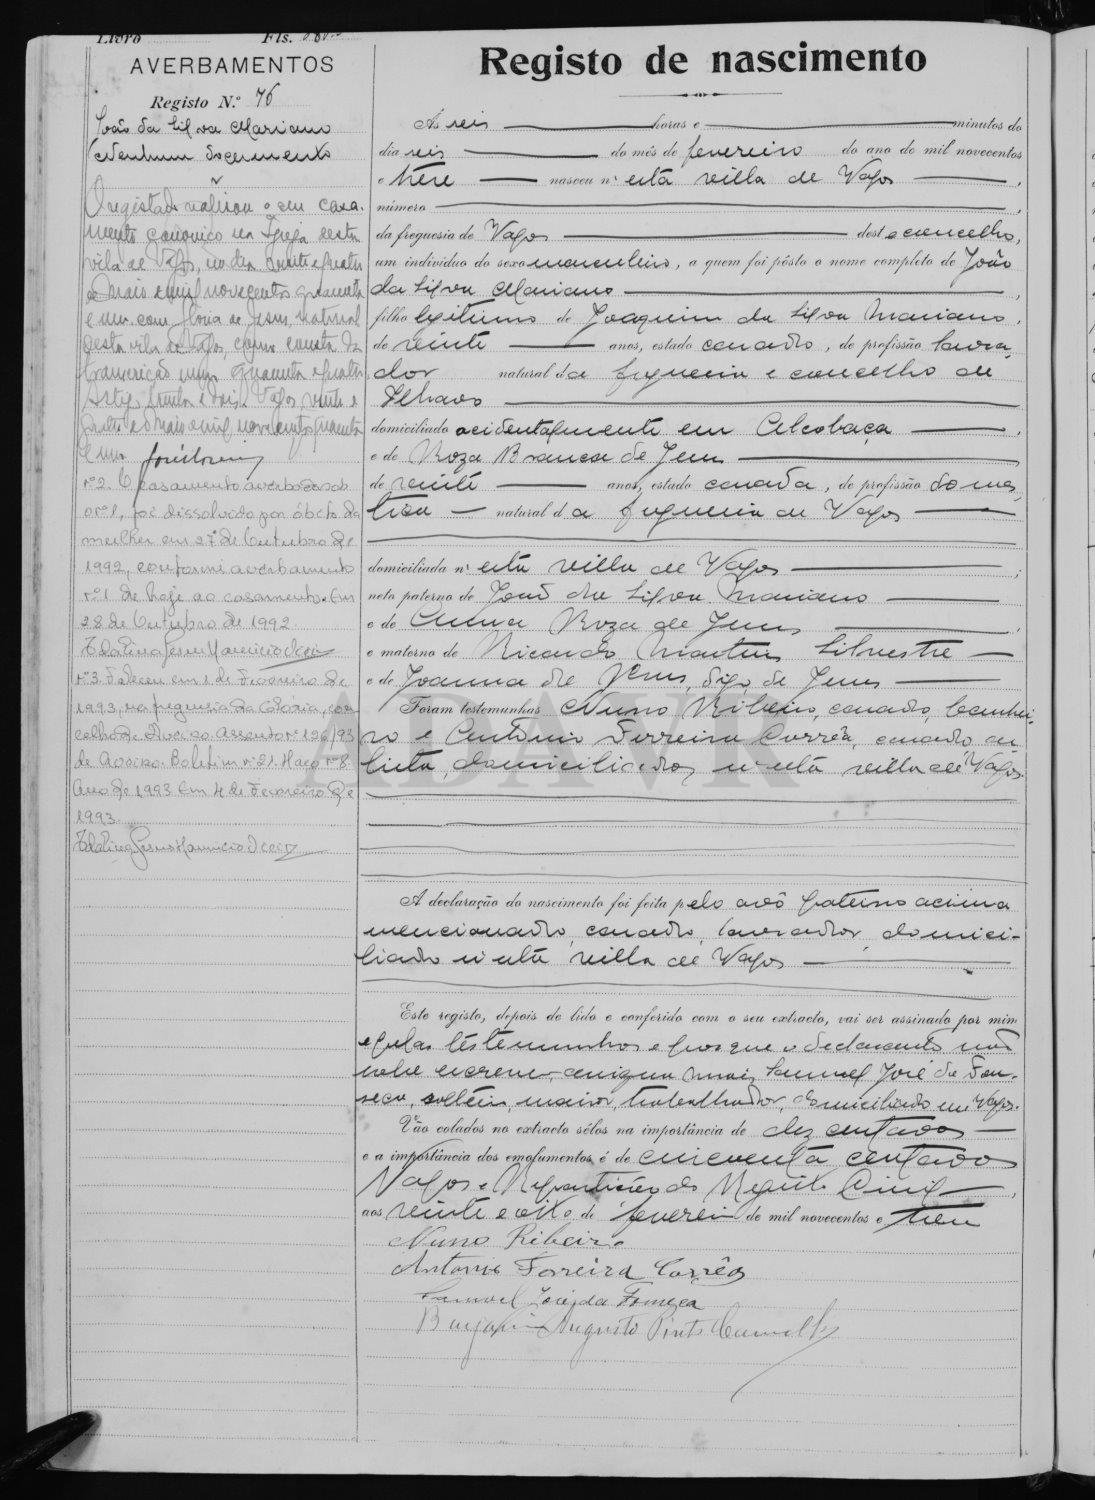 Livro Fls.
AVERBAMENTOS
Registo N.º 76
João da Silva Mariano
Nenhum documento
O registado realisou o seu casa-
mento canonico na Igreja desta
vila de Vagos, no dia vinte e quatro
de Maio de mil novecentos quarenta
e um com Gloria de Jesus, natural
desta vila de Vagos, como consta da
transcrição num. quarenta e quatro
Artigo trinta e dois. Vagos, vinte e
quatro de Maio de mil novecentos quarenta
e um
nº 2. O casamento averbado sob
o nº 1, foi dissolvido por óbito da
mulher em 27 de Outubro de
1992, conforme averbamento
nº 1 de hoje ao casamento. Em
28 de Outubro de 1992.
nº 3. Faleceu em 1 de Fevereiro de
1993, na freguesia da Glória, con-
celho de Aveiro. Assento nº 126/93
de Aveiro. Boletim nº 21. Maço nº 8
Ano de 1993. Em 4 de Fevereiro de
1993.
Registo de nascimento
Ás seis horas e minutos do
dia seis do mês de fevereiro do ano de mil novecentos
e trese nasceu n'esta villa de Vagos,
número,
da freguesia de Vagos deste concelho,
um indivíduo do sexo masculino, a quem foi pôsto o nome completo de João
da Silva Mariano,
filho legitimo de Joaquim da Silva Mariano,
de vinte anos, estado casado, de profissão lavra-
dor natural da freguesia e concelho de
Ilhavo
domiciliado acidentalmente em Alcobaça,
e de Roza Branca de Jesus
de vinte anos, estado casada, de profissão domes-
tica natural da freguesia de Vagos
domiciliada n'esta villa de Vagos;
neto paterno de José da Silva Mariano
e de Anna Roza de Jesus,
e materno de Ricardo Martins Silvestre
e de Joanna de Jesus, digo, de Jesus
Foram testemunhas Nuno Ribeiro, casado, barbei-
ro e Antonio Ferreira Corrêa, casado, ar-
tista, domiciliados n'esta villa de Vagos.
A declaração do nascimento foi feita pelo avô paterno acima
mencionado, casado, lavrador, domici-
liado n'esta villa de Vagos
Este registo, depois de lido e conferido com o seu extracto, vai ser assinado por mim
e pelas testemunhas e porque o declarante não
sabe escrever, assigna mais Samuel José da Fon-
seca, solteiro, maior, trabalhador, domiciliado em Vagos.
Vão colados no extracto sêlos na importância de dez centavos
e a importância dos emolumentos é de cincoenta centavos
Vagos e Repartição do Registo Civil,
aos vinte e oito de fevereiro de mil novecentos e trese
Nuno Ribeiro
Antonio Ferreira Corrêa
Samuel José da Fonseca
Benjamin Augusto Pinto
ADAVR